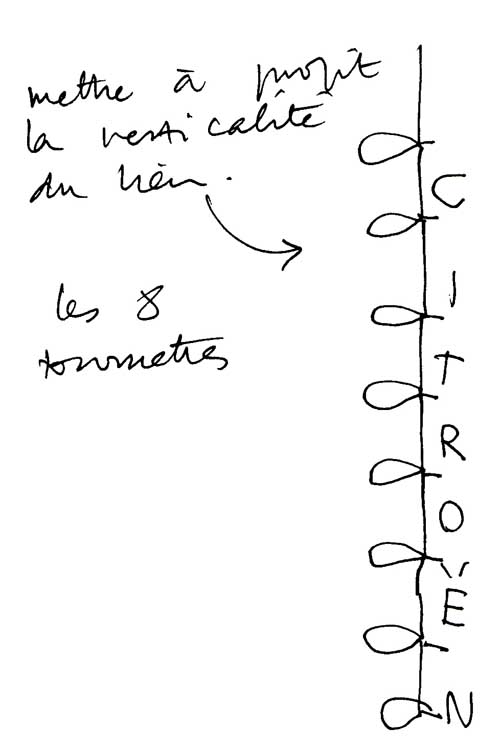 mettre à profit
la verticalité
du lieu.
les 8
tournettes
C
I
T
R
O
Ë
N